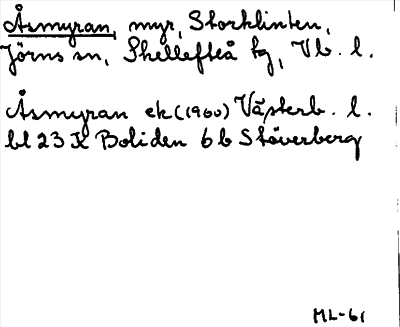 Åsmyran, myr, Storklinten,
Jörns sn, Skellefteå tg, Vb. l.
Åsmyran ek (1960) Västerb. l.
bl 23 K Boliden 6 b Stöverberg
ML-61